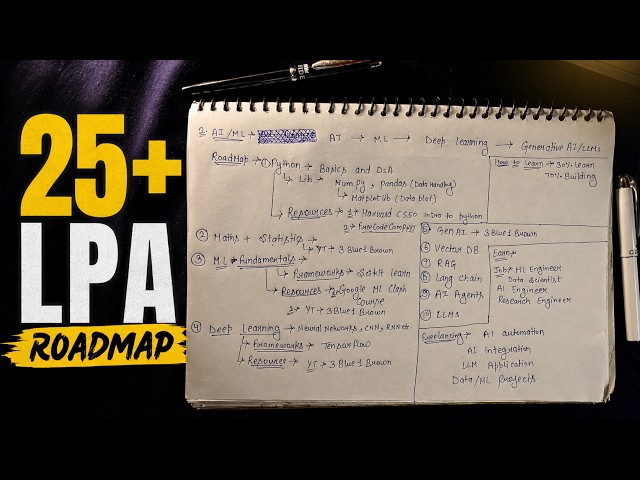 25+
LPA
ROADMAP
2. AI/ML → AI → ML → Deep learning → Generative AI/LLMs
RoadMap → ① Python → Basics and DSA
→ Lib → Num py, Pandas (Data Handling)
→ Matplotlib (Data plot)
→ Resources → 1→ Harvard CS50 intro to python
2→ FreeCodeCamp YT
② Maths + Statistics →
→ YT → 3 Blue 1 Brown
③ ML → Fundamentals →
→ Frameworks → Scikit learn
→ Resources → 1→ Google ML Crash
Course
2→ YT → 3 Blue 1 Brown
④ Deep Learning → Neural Networks, CNN, RNN etc.
→ Frameworks → Tensorflow
→ Resources → YT → 3 Blue 1 Brown
How to learn → 30% Learn
70% Building
⑤ Gen AI → 3 Blue 1 Brown
⑥ Vector DB
⑦ RAG
⑧ Lang Chain
⑨ AI Agents
⑩ LLMs
Earn:-
Job → ML Engineer
Data Scientist
AI Engineer
Research Engineer
Freelancing → AI automation
AI Integration
LLM Application
Data/ML Projects